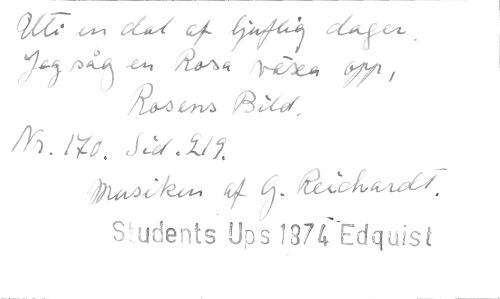 Uti en dal af ljuflig dager.
Jag såg en Rosa växa opp,
Rosens Bild.
Nr. 170. Sid. 219.
Musiken af G. Reichardt.
Students Ups 1874 Edquist